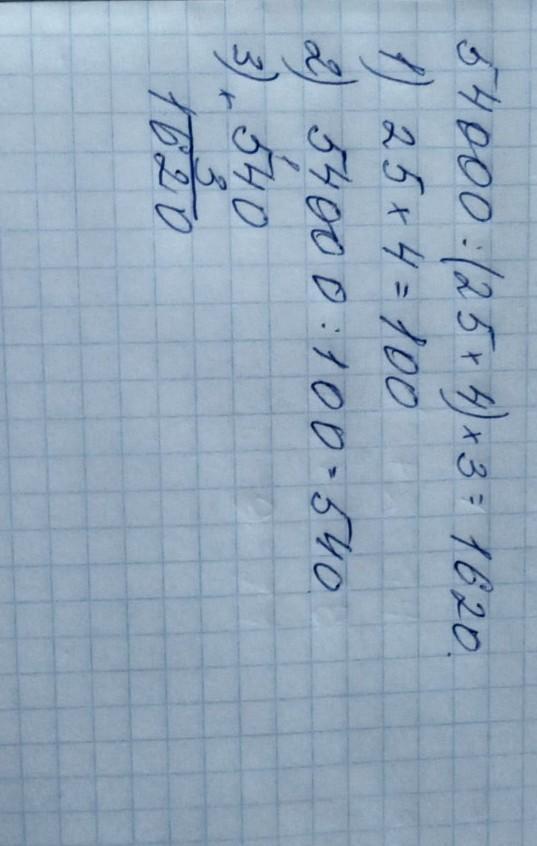 54000 : (25 × 4) × 3 = 1620.
1) 25 × 4 = 100
2) 54000 : 100 = 540
3) × 540
3
1620